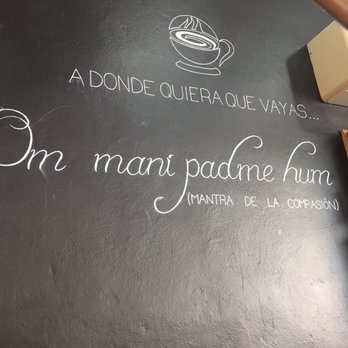 A DONDE QUIERA QUE VAYAS...
Om mani padme hum
(MANTRA DE LA COMPASIÓN)